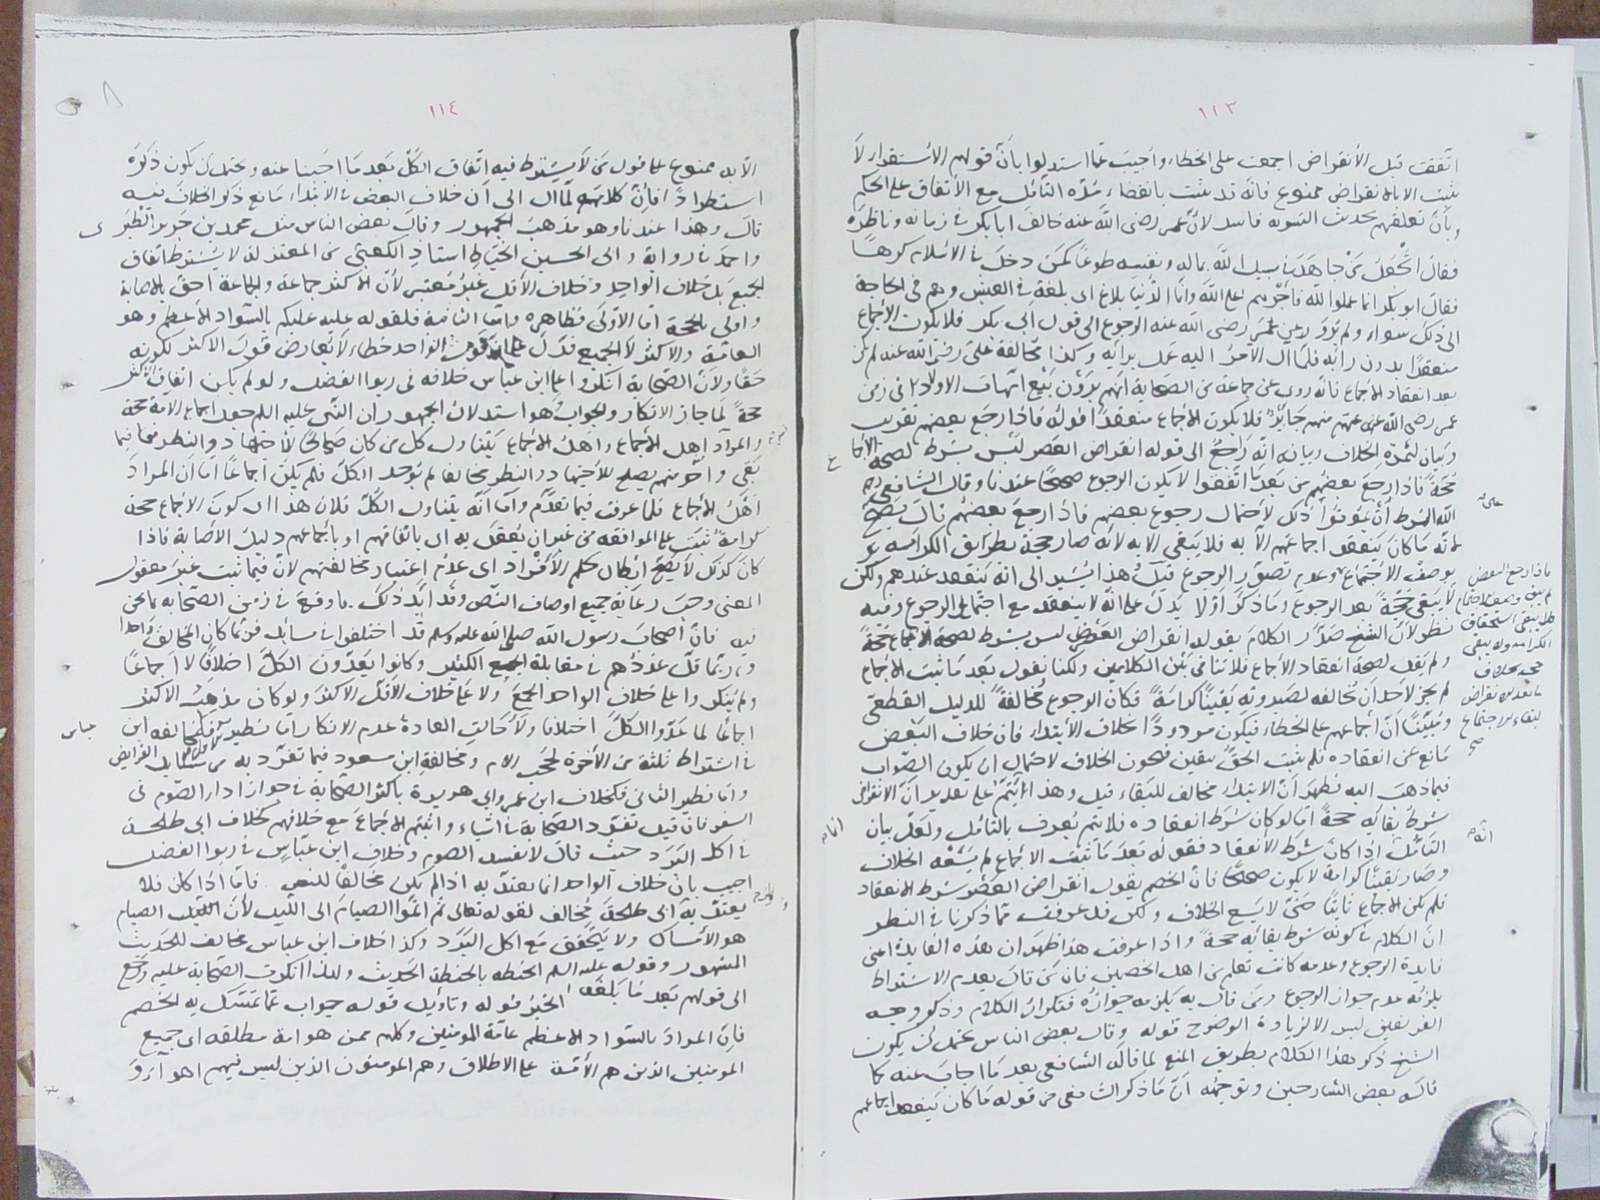 ١١٣
اتفقت قبل الأنقراض اجمعت على الخطاء واجيب عما استدلوا بان قولهم الأستقرار لا
يثبت الا بالانقراض ممنوع فانه قد يثبت بانقضاء مدة التأمل مع الأتفاق على الحكم
وبان تعلقهم بحديث التسويه فاسد لان عمر رضى الله عنه خالف ابا بكر في زمانه وناظره
فقال اتجعل من جاهد في سبيل الله بماله ونفسه طوعا كمن دخل في الأسلام كرها
فقال ابو بكر انما عملوا لله فاجرهم على الله وانما الدنيا بلاغ اى بلغة في العيش وهم في الحاجة
الى ذلك سواء ولم يرو عن عمر رضى الله عنه الرجوع الى قول ابى بكر فلا يكون الأجماع
منعقدا بدون رائه فلما ال الأمر اليه عمل برايه وكذا مخالفة على رضى الله عنه لم تكن
بعد انعقاد الأجماع فانه روى عن جماعة من الصحابة انهم يرون بيع امهات الاولاد في زمن
عمر رضى الله عنه منهم جابر فلا يكون الأجماع منعقدا قوله فاذا رجع بعضهم تقريب
وبيان لثمرة الخلاف وبيانه انه راجع الى قوله انقراض العصر ليس بشرط لصحة الأجماع
حجة فاذا رجع بعضهم من بعد ما اتفقوا لا يكون الرجوع صحيحا عندنا وقال الشافعى رحمه
الله الشرط ان يموتوا على ذلك لأحتمال رجوع بعضهم فاذا رجع بعضهم قال يصح
لانه ما كان ينعقد اجماعهم الا به فلا يبقى الا به لانه صار حجة بطريق الكرامة
بوصف الأجتماع وعدم تصور الرجوع قيل هذا يشير الى انه ينعقد عندهم ولكن
لا يبقى حجة بعد الرجوع وما ذكر اولا يدل على انه لا ينعقد مع احتمال الرجوع وفيه
نظر لان الشيخ صدر الكلام بقوله انقراض العصر ليس بشرط لصحة الأجماع حجة
ولم يقل لصحة انعقاد الأجماع فلا تنافى بين الكلامين ولكنا نقول بعد ما ثبت الأجماع
لم يجز لأحد ان يخالفه لصيرورته يقينا كرامة فكان الرجوع مخالفة للدليل القطعى
وتبينا ان اجماعهم على الخطاء فيكون مردودا بخلاف الأبتداء فان خلاف البعض
مانع عن انعقاده فلم يثبت الحق بيقين فيجوز الخلاف لاحتمال ان يكون الصواب
فيما ذهب اليه فظهر ان الابتداء مخالف للبقاء قيل وهذا انما يتم على تقدير ان الانقراض
شرط بقائه حجة اما لو كان شرط انعقاده فلا يتم يعرف بالتامل ولعل بيان
التامل انه اذا كان شرط الأنعقاد فقوله بعد ما ثبت الاجماع لم يسعه الخلاف
وصار يقينا كرامة لا يكون صحيحا فان الخصم يقول انقراض العصر شرط الانعقاد
فلم يكن الاجماع ثابتا حتى لا يسع الخلاف ولكن قد عرفت مما ذكرنا في النظر
ان الكلام في كونه شرط بقائه حجة واذا عرفت هذا ظهر ان هذه الفايدة اعنى
فايدة الرجوع وعدمه كانت تعلم من اصل الخصمين فان من قال بعدم الاشتراط
يلزمه عدم جواز الرجوع ومن قال به يلزمه جوازه فتكرار الكلام وذكر وجه
الفريقين ليس الا لزيادة الوضوح قوله وقال بعض الناس يحتمل ان يكون
الشيخ ذكر هذا الكلام بطريق المنع لما قاله الشافعى بعد ما اجاب عنه كما
قاله بعض الشارحين وتوجيهه ان ما ذكر الشافعى من قوله ما كان ينعقد اجماعهم
على
فاذا رجع البعض
لم يبق وصف الاجتماع
فلا يبقى استحقاق
الكرامة ولا يبقى
حجة بخلاف
ما بعد الانقراض
لبقاء الاجتماع
صح
١١٤
الا به ممنوع على قول من لا يشترط فيه اتفاق الكل بعد ما اجبنا عنه ويحتمل ان يكون ذكره
استطرادا فان كلامه لما ال الى ان خلاف البعض في الأبتداء مانع ذكر الخلاف فيه
قال وهذا عندنا وهو مذهب الجمهور وقال بعض الناس مثل محمد بن جرير الطبرى
واحمد في رواية وابى الحسين الخياط استاد الكعبى من المعتزلة لا يشترط اتفاق
الجميع بل خلاف الواحد وخلاف الأقل غير معتبر لأن الأكثر جماعة والجماعة احق بالاصابة
واولى بالحجة اما الأولى فظاهرة واما الثانية فلقوله عليه عليكم بالسواد الأعظم وهو
العامة والاكثر لا الجميع فدل على ان قول الواحد خطاء لا يعارض قول الاكثر لكونه
حقا ولان الصحابة انكروا على ابن عباس خلافه في ربوا الفضل ولو لم يكن اتفاق الأكثر
حجة لما جاز الانكار والجواب هو استدلال الجمهور ان النبى عليه السلم جعل اجماع الامة حجة
والمراد اهل الأجماع واهل الأجماع يتناول كل من كان صالحا للاجتهاد والنظر فما
بقى واحد منهم يصلح للأجتهاد والنظر مخالفا لم يوجد الكل فلم يكن اجماعا اما ان المراد
اهل الأجماع فلما عرفت فيما تقدم واما انه يتناول الكل فلان هذا اى كون الاجماع حجة
كرامة تثبت على الموافقة من غير ان يعقل به اى باتفاقهم او باجماعهم دليل الأصابة فاذا
كان كذلك لا يصح ابطال حكم الأفراد اى عدم اعتبار مخالفتهم لان فيما ثبت غير معقول
المعنى وجب رعاية جميع اوصاف النص وقد ايد ذلك بما وقع في زمن الصحابة ما نحن
فيه فان اصحاب رسول الله صلى الله عليه وسلم قد اختلفوا في مسائل فربما كان المخالف واحدا
وربما قل عددهم في مقابلة الجمع الكثير وكانوا يعدون الكل اختلافا لا اجماعا
ولم ينكروا على خلاف الواحد الجمع ولا على خلاف الأقل الاكثر ولو كان مذهب الاكثر
اجماعا لما عدوا الكل اختلافا ولأحالت العادة عدم الانكار اما نظير الأول فكمخالفة ابن عباس
في اشتراط ثلثة من الأخوة لحجب الأم ومخالفة ابن مسعود فيما تفرد به من مسايل الفرايض
واما نظير الثانى فكخلاف ابن عمر وابى هريرة باكثر الصحابة في جواز اداء الصوم في
السفر فان قيل تفرد الصحابة في اشياء واثبتم الأجماع مع خلافهم كخلاف ابى طلحة
في اكل البرد حيث قال لا يفسد الصوم وخلاف ابن عباس في ربوا الفضل
اجيب بان خلاف الواحد انما يعتد به اذا لم يكن مخالفا للنص فاما اذا كان فلا
يعتد به ابى طلحة مخالف لقوله تعالى ثم اتموا الصيام الى الليل لان الصيام
هو الأمساك ولا يتحقق مع اكل البرد وكذا خلاف ابن عباس مخالف للحديث
المشهور وقوله عليه السلم الحنطة بالحنطة الحديث ولهذا انكرت الصحابة عليه ورجع
الى قولهم بعد ما بلغه الخبر قوله وتاويل قوله جواب عما تمسك به الخصم
فان المراد بالسواد الأعظم عامة المومنين وكلهم ممن هو امة مطلقه اى جميع
المومنين الذين هم الأمة على الاطلاق وهم المومنون الذين ليس فيهم اهواء